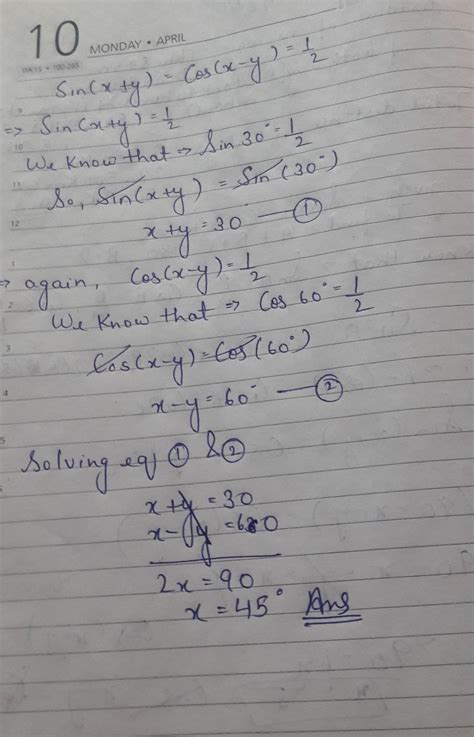 10 MONDAY • APRIL
WK 15 • 100-265
Sin(x+y) = Cos(x-y) = 1/2
9
⇒ Sin(x+y) = 1/2
10
We Know that ⇒ Sin 30° = 1/2
11
So, Sin(x+y) = Sin(30°)
12
x+y = 30 — ①
1
⇒ again, Cos(x-y) = 1/2
2
We Know that ⇒ Cos 60° = 1/2
3
Cos(x-y) = Cos(60°)
4
x-y = 60° — ②
5
Solving eq ① & ②
x+y = 30
x-y = 60
2x = 90
x = 45° Ans